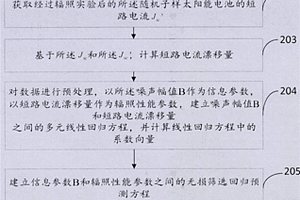 获取经过辐照实验后的所述随机子样太阳能电池的短
路电流J
203
基于所述J 和所述J ；计算短路电流漂移量
204
对数据进行预处理，以所述噪声幅值B作为信息参数，
以短路电流漂移量作为辐照性能参数，建立噪声幅值B
和短路电流漂移量
之间的多元线性回归方程，并计算线性回归方程中的
系数向量
205
建立信息参数B和辐照性能参数之间的无损筛选回归预
测方程